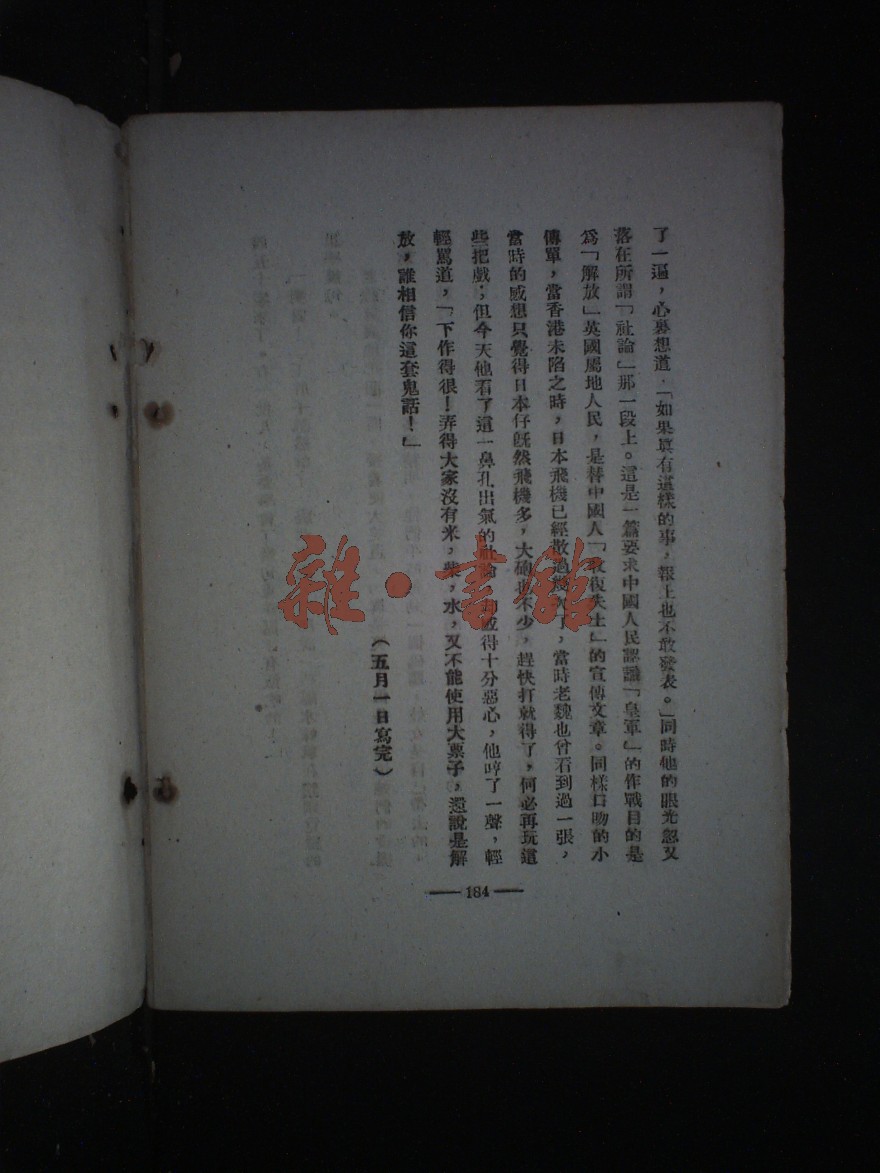 了一遍，心裏想道，「如果眞有這樣的事，報上也不敢發表。」同時他的眼光忽又
落在所謂「社論」那一段上。這是一篇要求中國人民認識「皇軍」的作戰目的是
爲「解放」英國屬地人民，是替中國人「收復失土」的宣傳文章。同樣口吻的小
傳單，當香港未陷之時，日本飛機已經散過幾次了，當時老魏也曾看到過一張，
當時的感想只覺得日本仔旣然飛機多，大砲也不少，趕快打就得了，何必再玩這
些把戲；但今天他看了這一鼻孔出氣的社論，却感得十分惡心，他哼了一聲，輕
輕罵道，「下作得很！弄得大家沒有米，柴，水，又不能使用大票子，還說是解
放，誰相信你這套鬼話！」
（五月一日寫完）
—184—
雜·書館